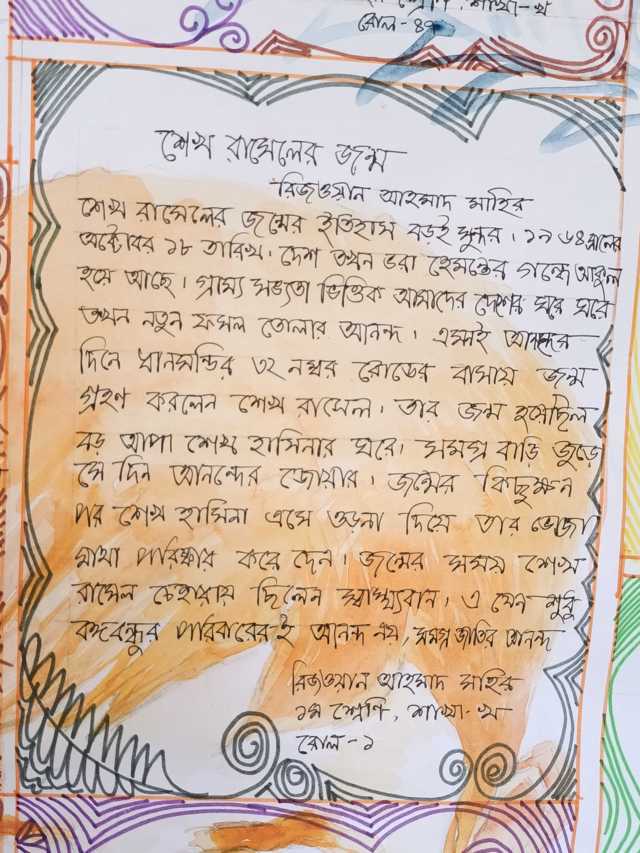 ১ম শ্রেণি, শাখা-খ
রোল-৪৭
শেখ রাসেলের জন্ম
রিজওয়ান আহমাদ মাহির
শেখ রাসেলের জন্মের ইতিহাস বড়ই সুন্দর। ১৯৬৪ সালের
অক্টোবর ১৮ তারিখ। দেশ তখন ভরা হেমন্তের গন্ধে আকুল
হয়ে আছে। গ্রাম্য সভ্যতা ভিত্তিক আমাদের দেশের ঘরে ঘরে
তখন নতুন ফসল তোলার আনন্দ। এমনই আনন্দের
দিনে ধানমন্ডির ৩২ নম্বর রোডের বাসায় জন্ম
গ্রহণ করলেন শেখ রাসেল। তার জন্ম হয়েছিল
বড় আপা শেখ হাসিনার ঘরে। সমগ্র বাড়ি জুড়ে
সে দিন আনন্দের জোয়ার। জন্মের কিছুক্ষন
পর শেখ হাসিনা এসে ওড়না দিয়ে তার ভেজা
মাথা পরিষ্কার করে দেন। জন্মের সময় শেখ
রাসেল চেহারায় ছিলেন স্বাস্থ্যবান। এ যেন শুধু
বঙ্গবন্ধুর পরিবারের ই আনন্দ নয়, সমগ্র জাতির আনন্দ
রিজওয়ান আহমাদ মাহির
১ম শ্রেণি, শাখা-খ
রোল-১